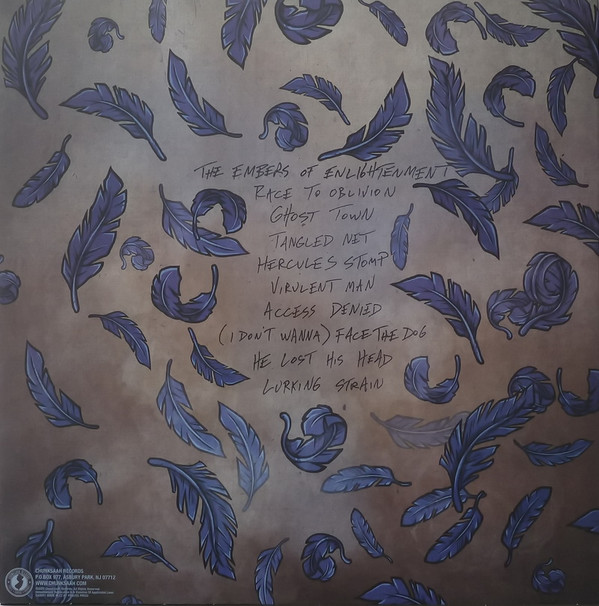 THE EMBERS OF ENLIGHTENMENT
RACE TO OBLIVION
GHOST TOWN
TANGLED NET
HERCULES STOMP
VIRULENT MAN
ACCESS DENIED
(I DON'T WANNA) FACE THE DOG
HE LOST HIS HEAD
LURKING STRAIN
CHUNKSAAH RECORDS
P.O BOX 977, ASBURY PARK, NJ 07712
WWW.CHUNKSAAH.COM